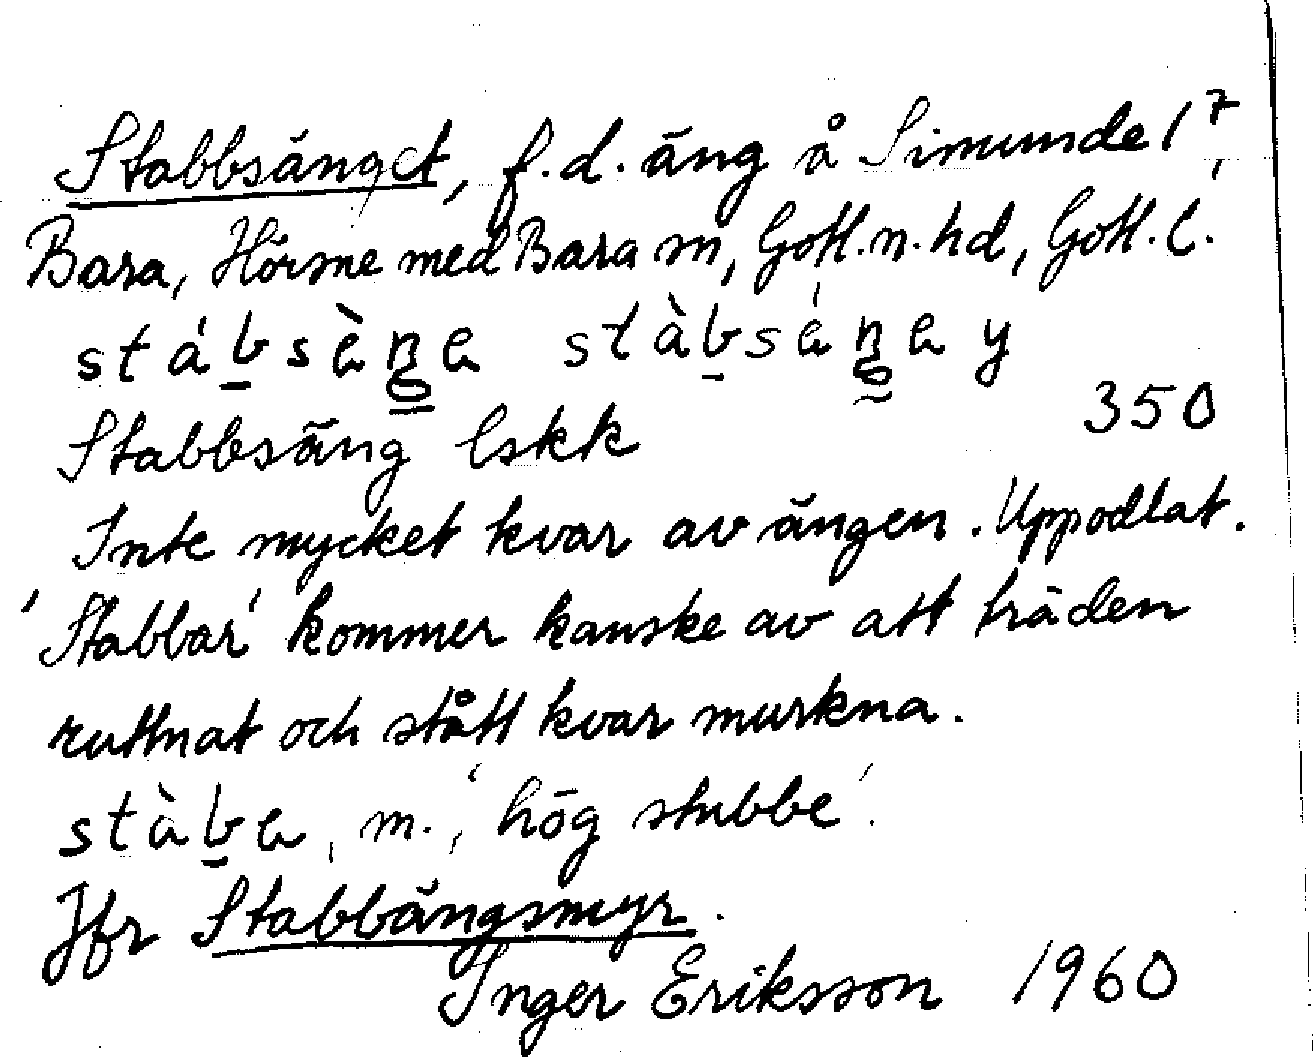 Stabbsänget, f.d. äng å Simunde 1⁷,
Bara, Hörsne med Bara sn, Gotl. n. hd, Gotl. l.
stábsèŋa stàbséŋa y
350
Stabbsäng lskk
Inte mycket kvar av ängen. Uppodlat.
'Stabbar' kommer kanske av att träden
ruttnat och stått kvar murkna.
stàba, m., 'hög stubbe'.
Jfr Stabbängsmyr.
Inger Eriksson 1960